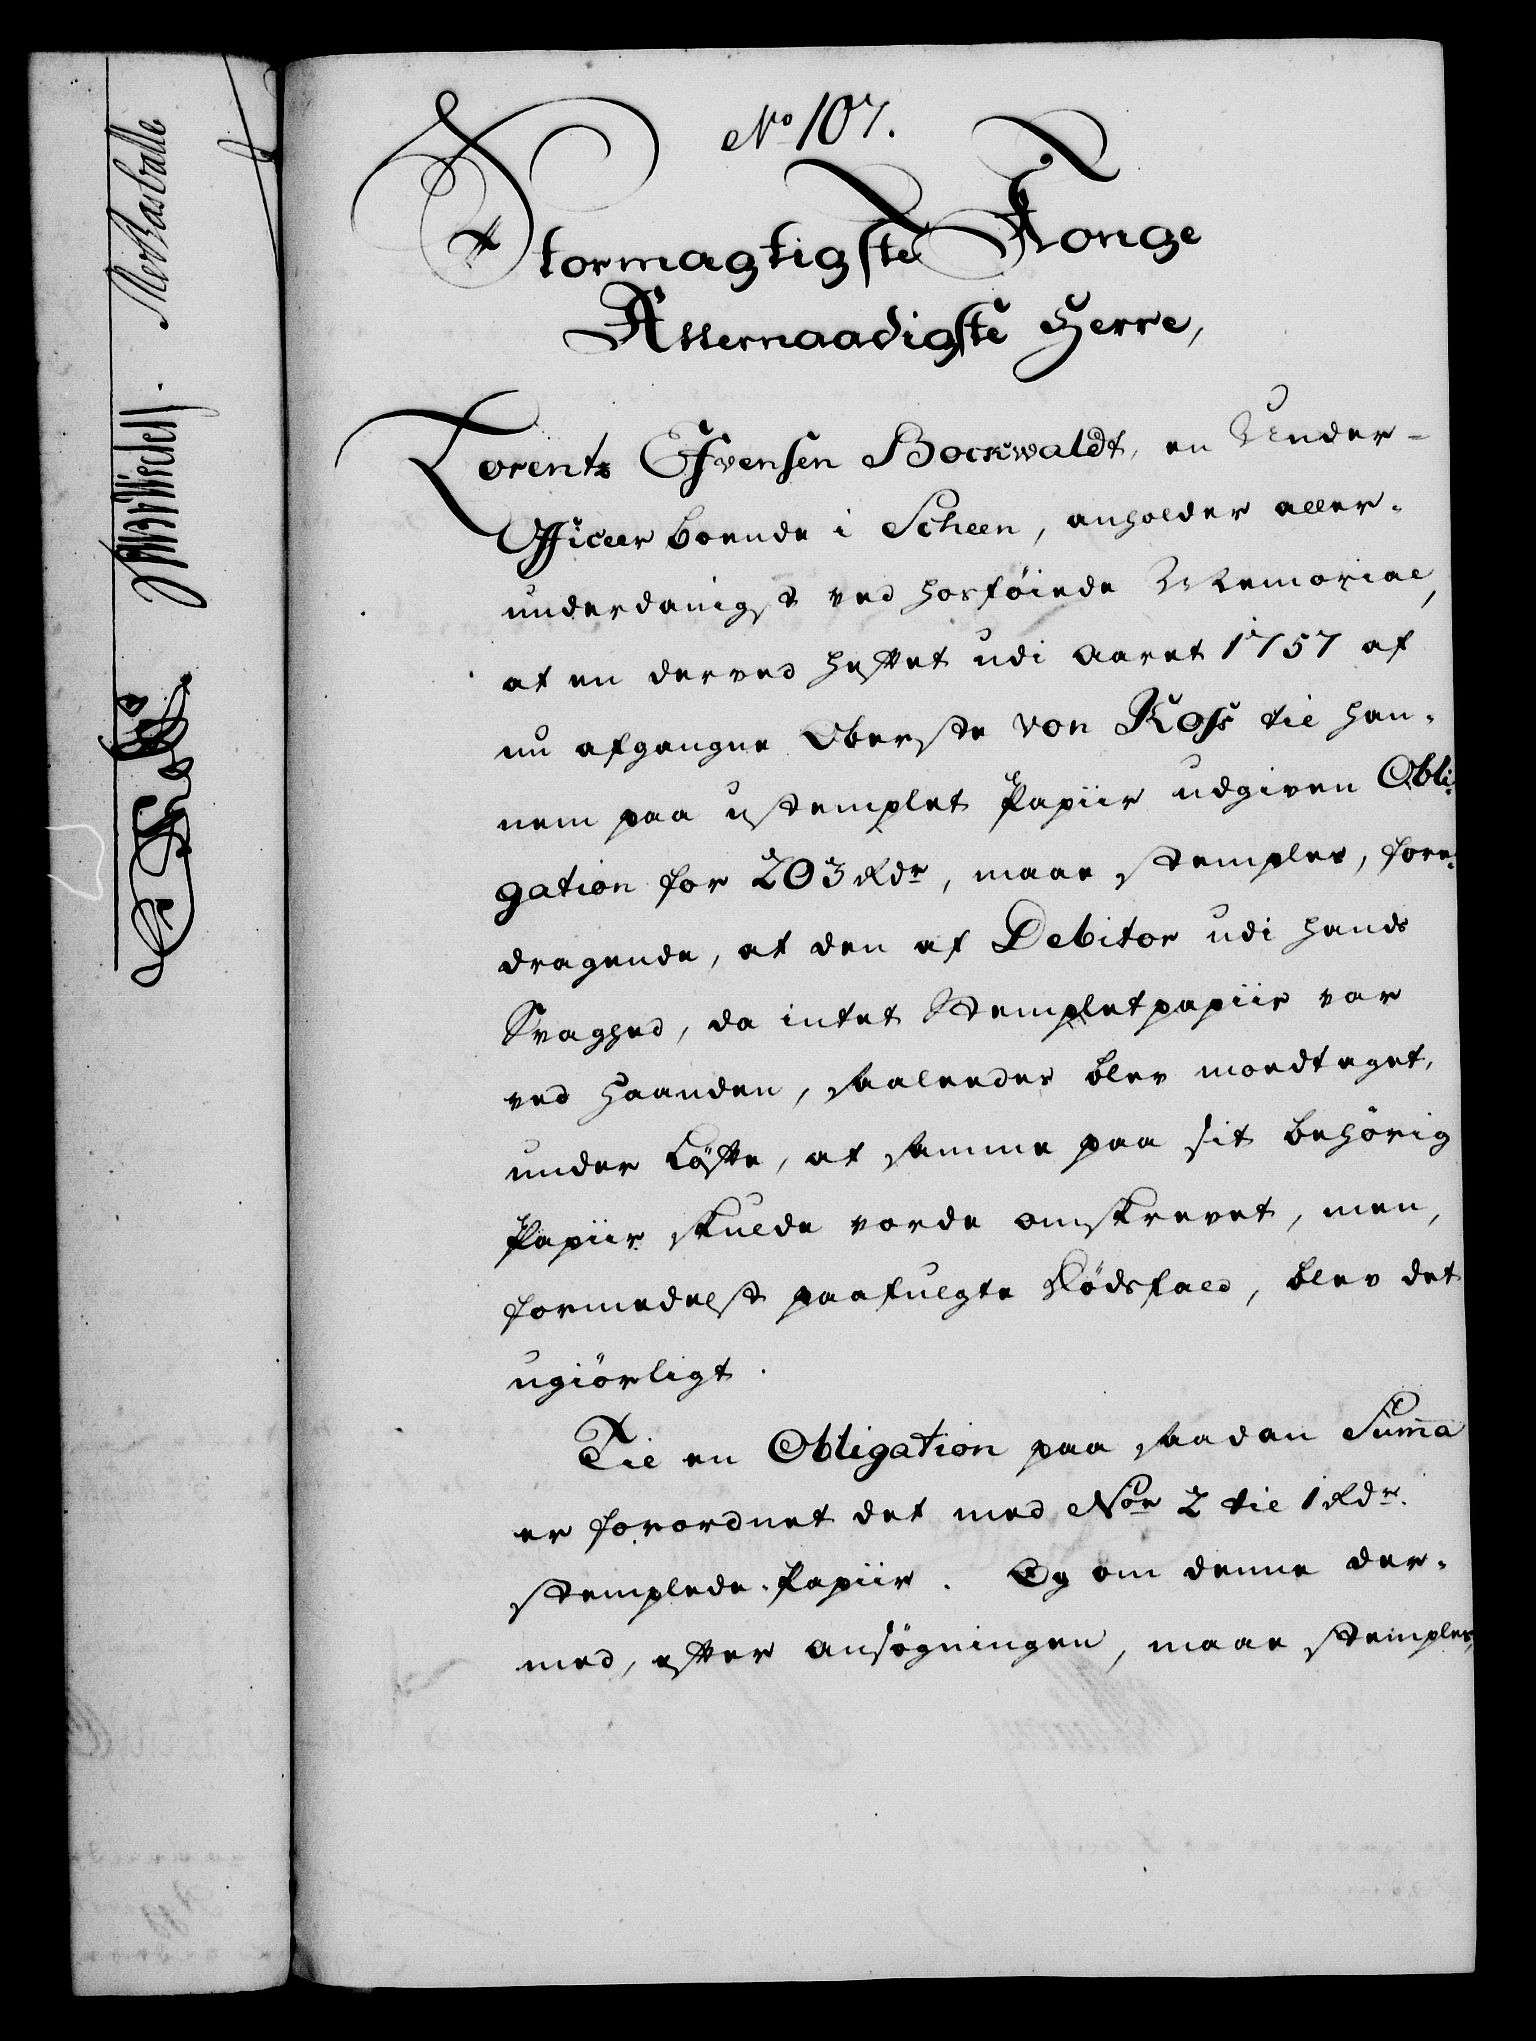 No 107.
Stormægtigste Konge
Allernaadigste Herre,
Lorentz Evensen Bockwaldt, en Under-
Officeer boende i Scheen, anholder aller-
underdanigst ved hosföiede Memorial,
at en derved heftet udi Aaret 1757 af
nu afgangne Oberste von Koss til han-
nem paa ustemplet Papiir udgiven Obli-
gation for 203 Rdr, maae stemples, fore-
dragende, at den af Debitor udi hands
Svaghed, da intet Stempletpapiir var
ved Haanden, saaleedes blev modtaget,
under Löfte, at samme paa sit behörig
Papiir skulde vorde omskrevet, men,
formedelst paafulgte Dödsfald, blev det
ugiörligt.
Til en Obligation paa saadan Summa
er forordnet det med Nor 2 til 1 Rdr.
stemplede Papiir. Og om denne der-
med, efter Ansögningen, maae stemples,